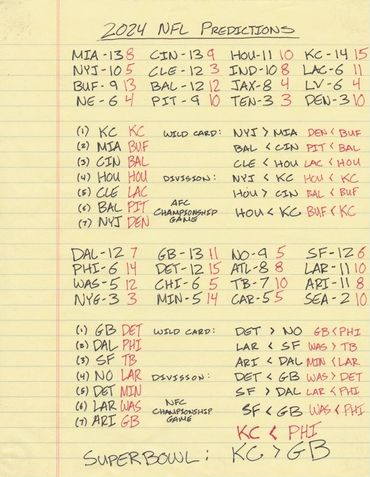 2024 NFL PREDICTIONS
MIA-13 8 CIN-13 9 HOU-11 10 KC-14 15
NYJ-10 5 CLE-12 3 IND-10 8 LAC-6 11
BUF-9 13 BAL-12 12 JAX-8 4 LV-6 4
NE-6 4 PIT-9 10 TEN-3 3 DEN-3 10
(1) KC KC WILD CARD: NYJ > MIA DEN < BUF
(2) MIA BUF BAL < CIN PIT < BAL
(3) CIN BAL CLE < HOU LAC < HOU
(4) HOU HOU DIVISION: NYJ < KC HOU < KC
(5) CLE LAC HOU > CIN BAL < BUF
(6) BAL PIT AFC CHAMPIONSHIP GAME HOU < KC BUF < KC
(7) NYJ DEN
DAL-12 7 GB-13 11 NO-9 5 SF-12 6
PHI-6 14 DET-12 15 ATL-8 8 LAR-11 10
WAS-5 12 CHI-6 5 TB-7 10 ARI-11 8
NYG-3 3 MIN-5 14 CAR-5 5 SEA-2 10
(1) GB DET WILD CARD: DET > NO GB < PHI
(2) DAL PHI LAR < SF WAS > TB
(3) SF TB ARI < DAL MIN < LAR
(4) NO LAR DIVISION: DET < GB WAS > DET
(5) DET MIN SF > DAL LAR < PHI
(6) LAR WAS NFC CHAMPIONSHIP GAME SF < GB WAS < PHI
(7) ARI GB
KC < PHI
SUPERBOWL: KC > GB